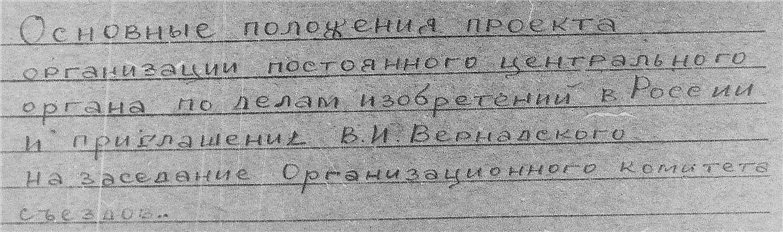 Основные положения проекта
организации постоянного центрального
органа по делам изобретений в России
и приглашение В.И. Вернадского
на заседание Организационного комитета
съездов..